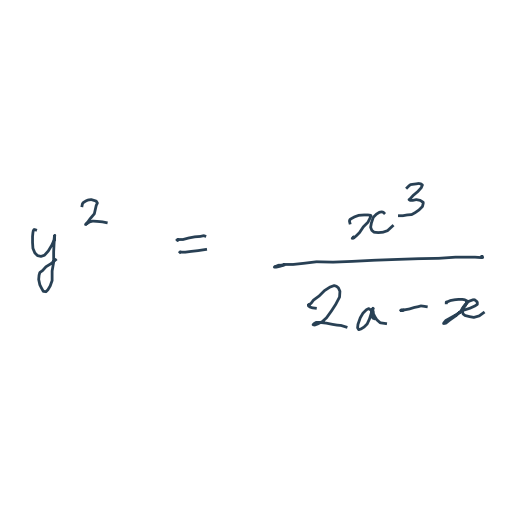 y² = x³/(2a − x)